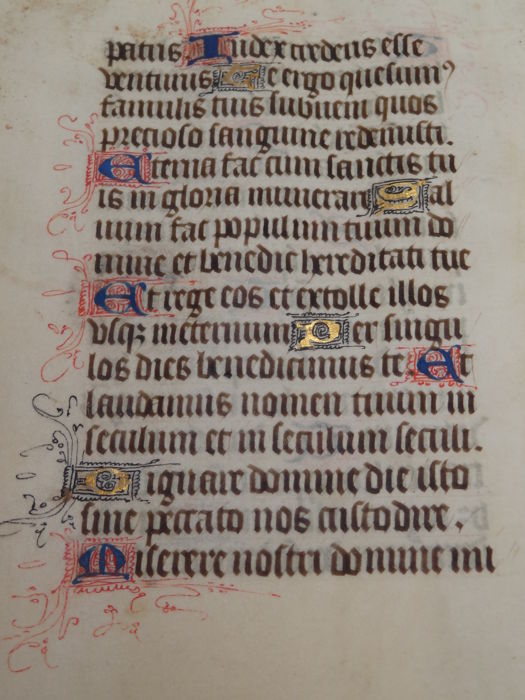 patris Iudex crederis esse
venturus Te ergo quesum⁹
famulis tuis subueni quos
precioso sanguine redemisti.
Eterna fac cum sanctis tu
is in gloria munerari Sal
uum fac populum tuum do
mine et benedic hereditati tue
Et rege eos et extolle illos
vsqꝫ ineternum Per singu
los dies benedicimus te Et
laudamus nomen tuum in
seculum et in seculum seculi.
Dignare domine die isto
sine peccato nos custodire.
Miserere nostri domine mi